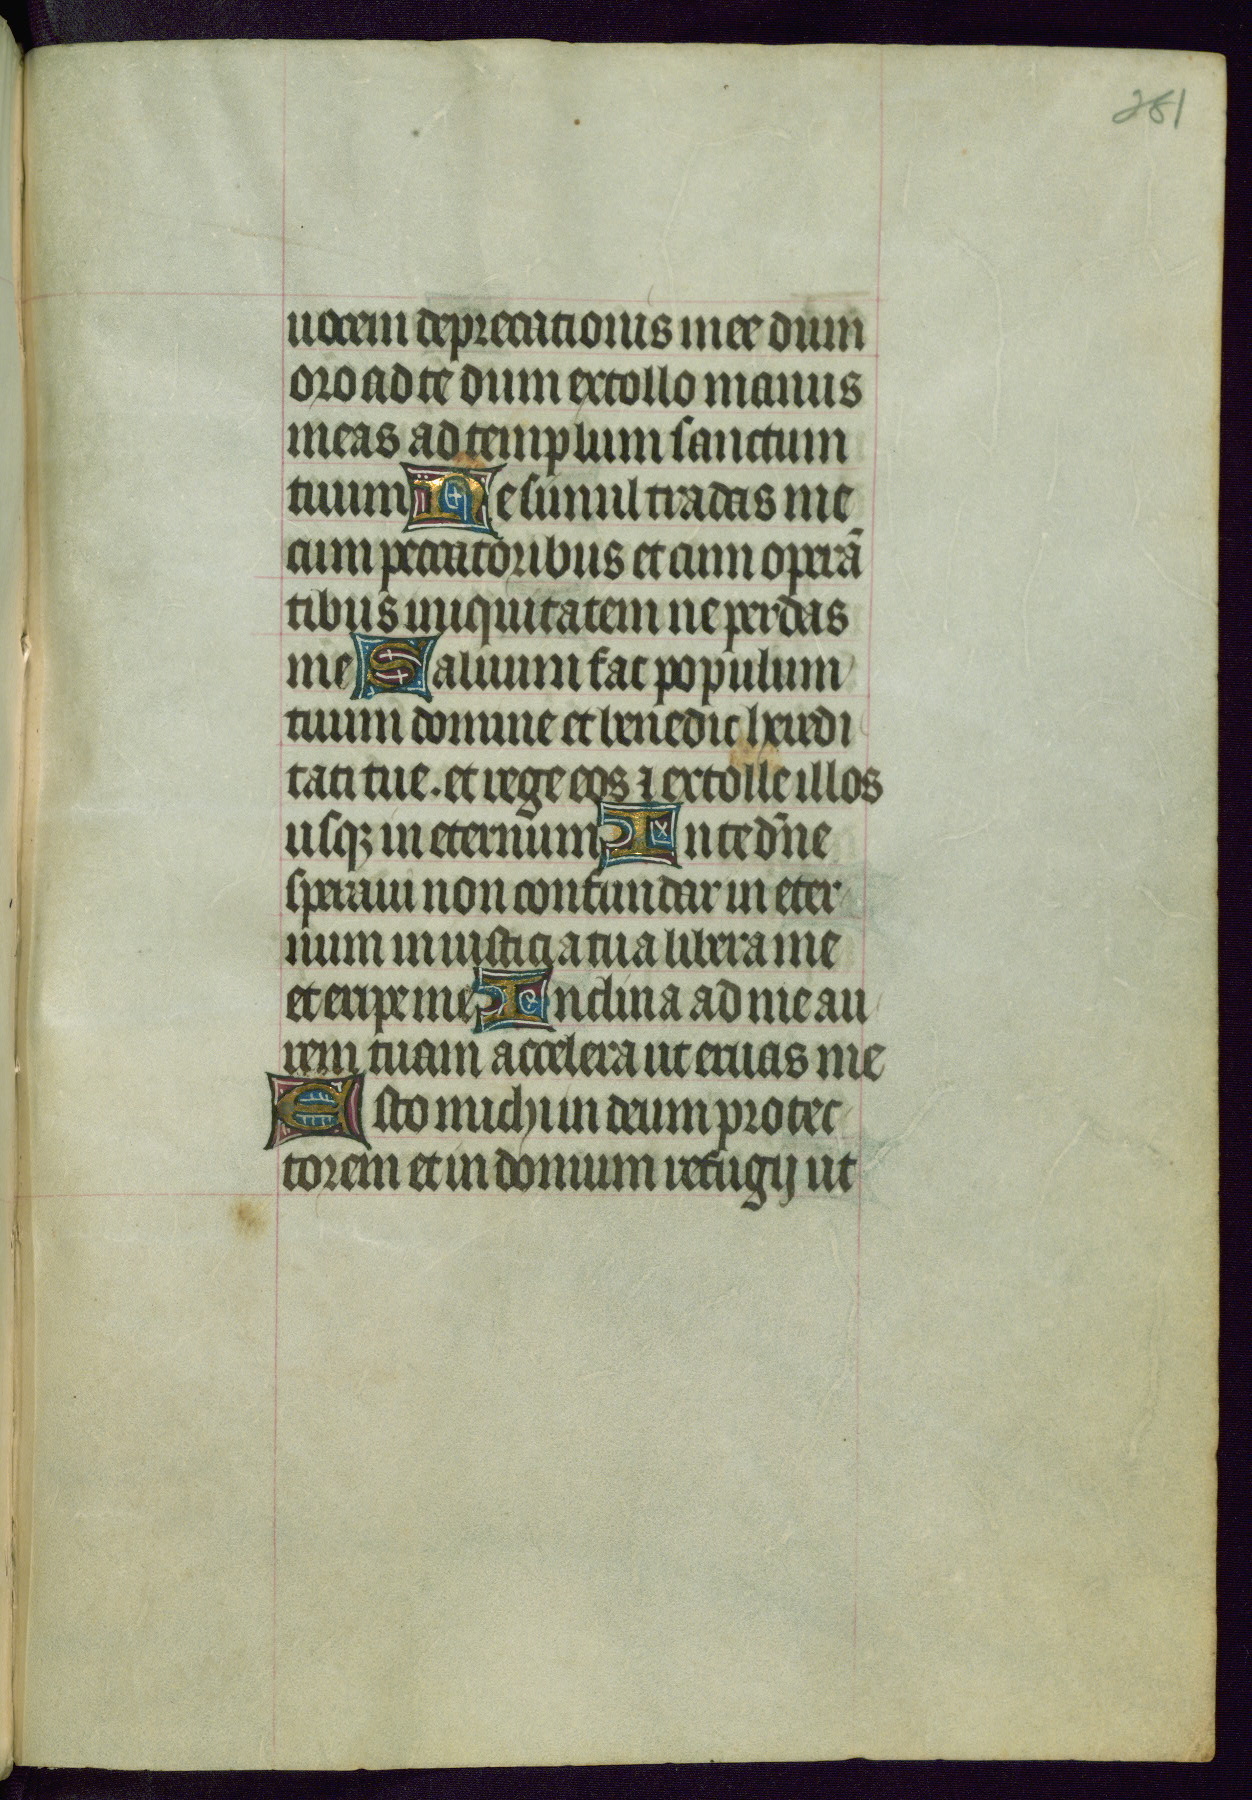 281
uocem deprecationis mee dum
oro ad te dum extollo manus
meas ad templum sanctum
tuum Ne simul tradas me
cum peccatoribus et cum operā
tibus iniquitatem ne perdas
me Saluum fac populum
tuum domine et benedic heredi
tati tue. et rege eos ⁊ extolle illos
usqꝫ in eternum In te dn̄e
speraui non confundar in eter
num in iusticia tua libera me
et eripe me Inclina ad me au
rem tuam accelera ut eruas me
Esto michi in deum protec
torem et in domum refugij ut